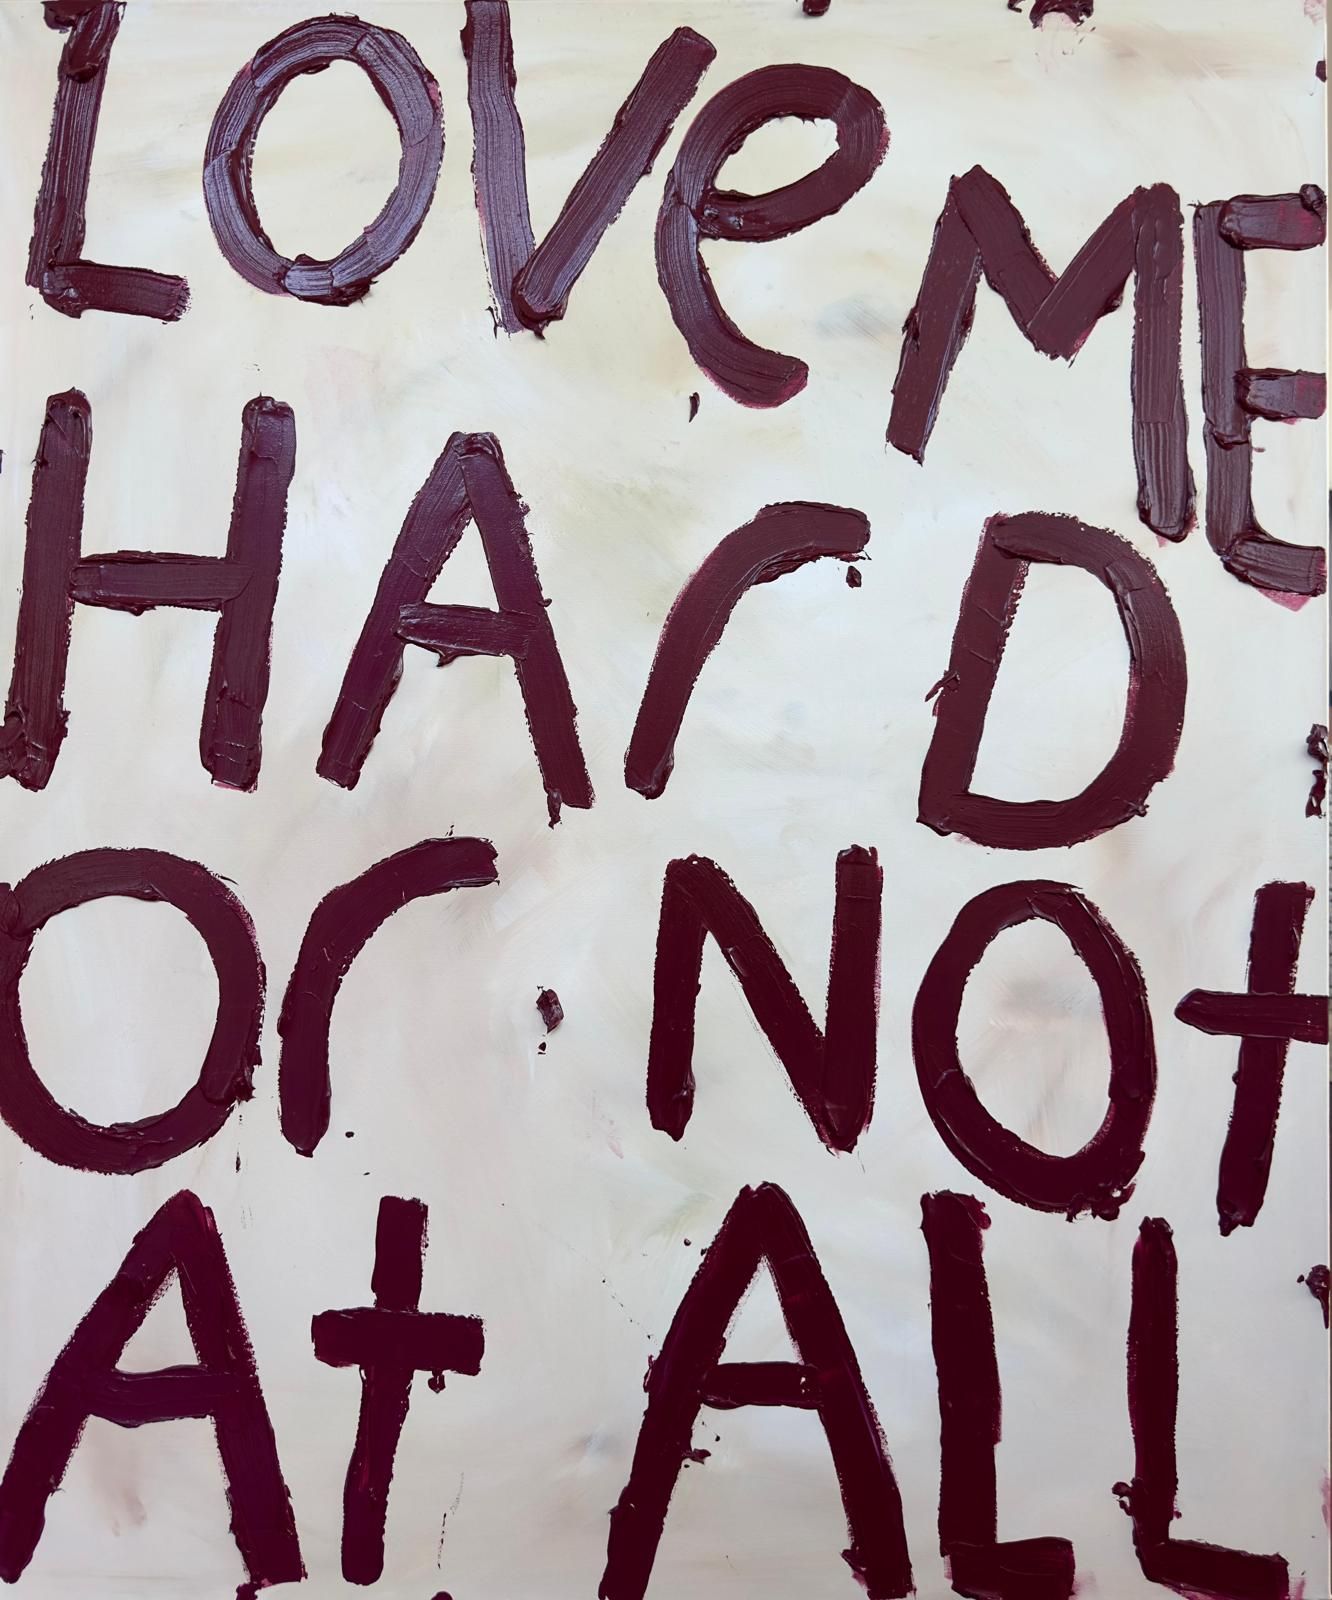 LOVe ME
HArD
Or NOt
At ALL